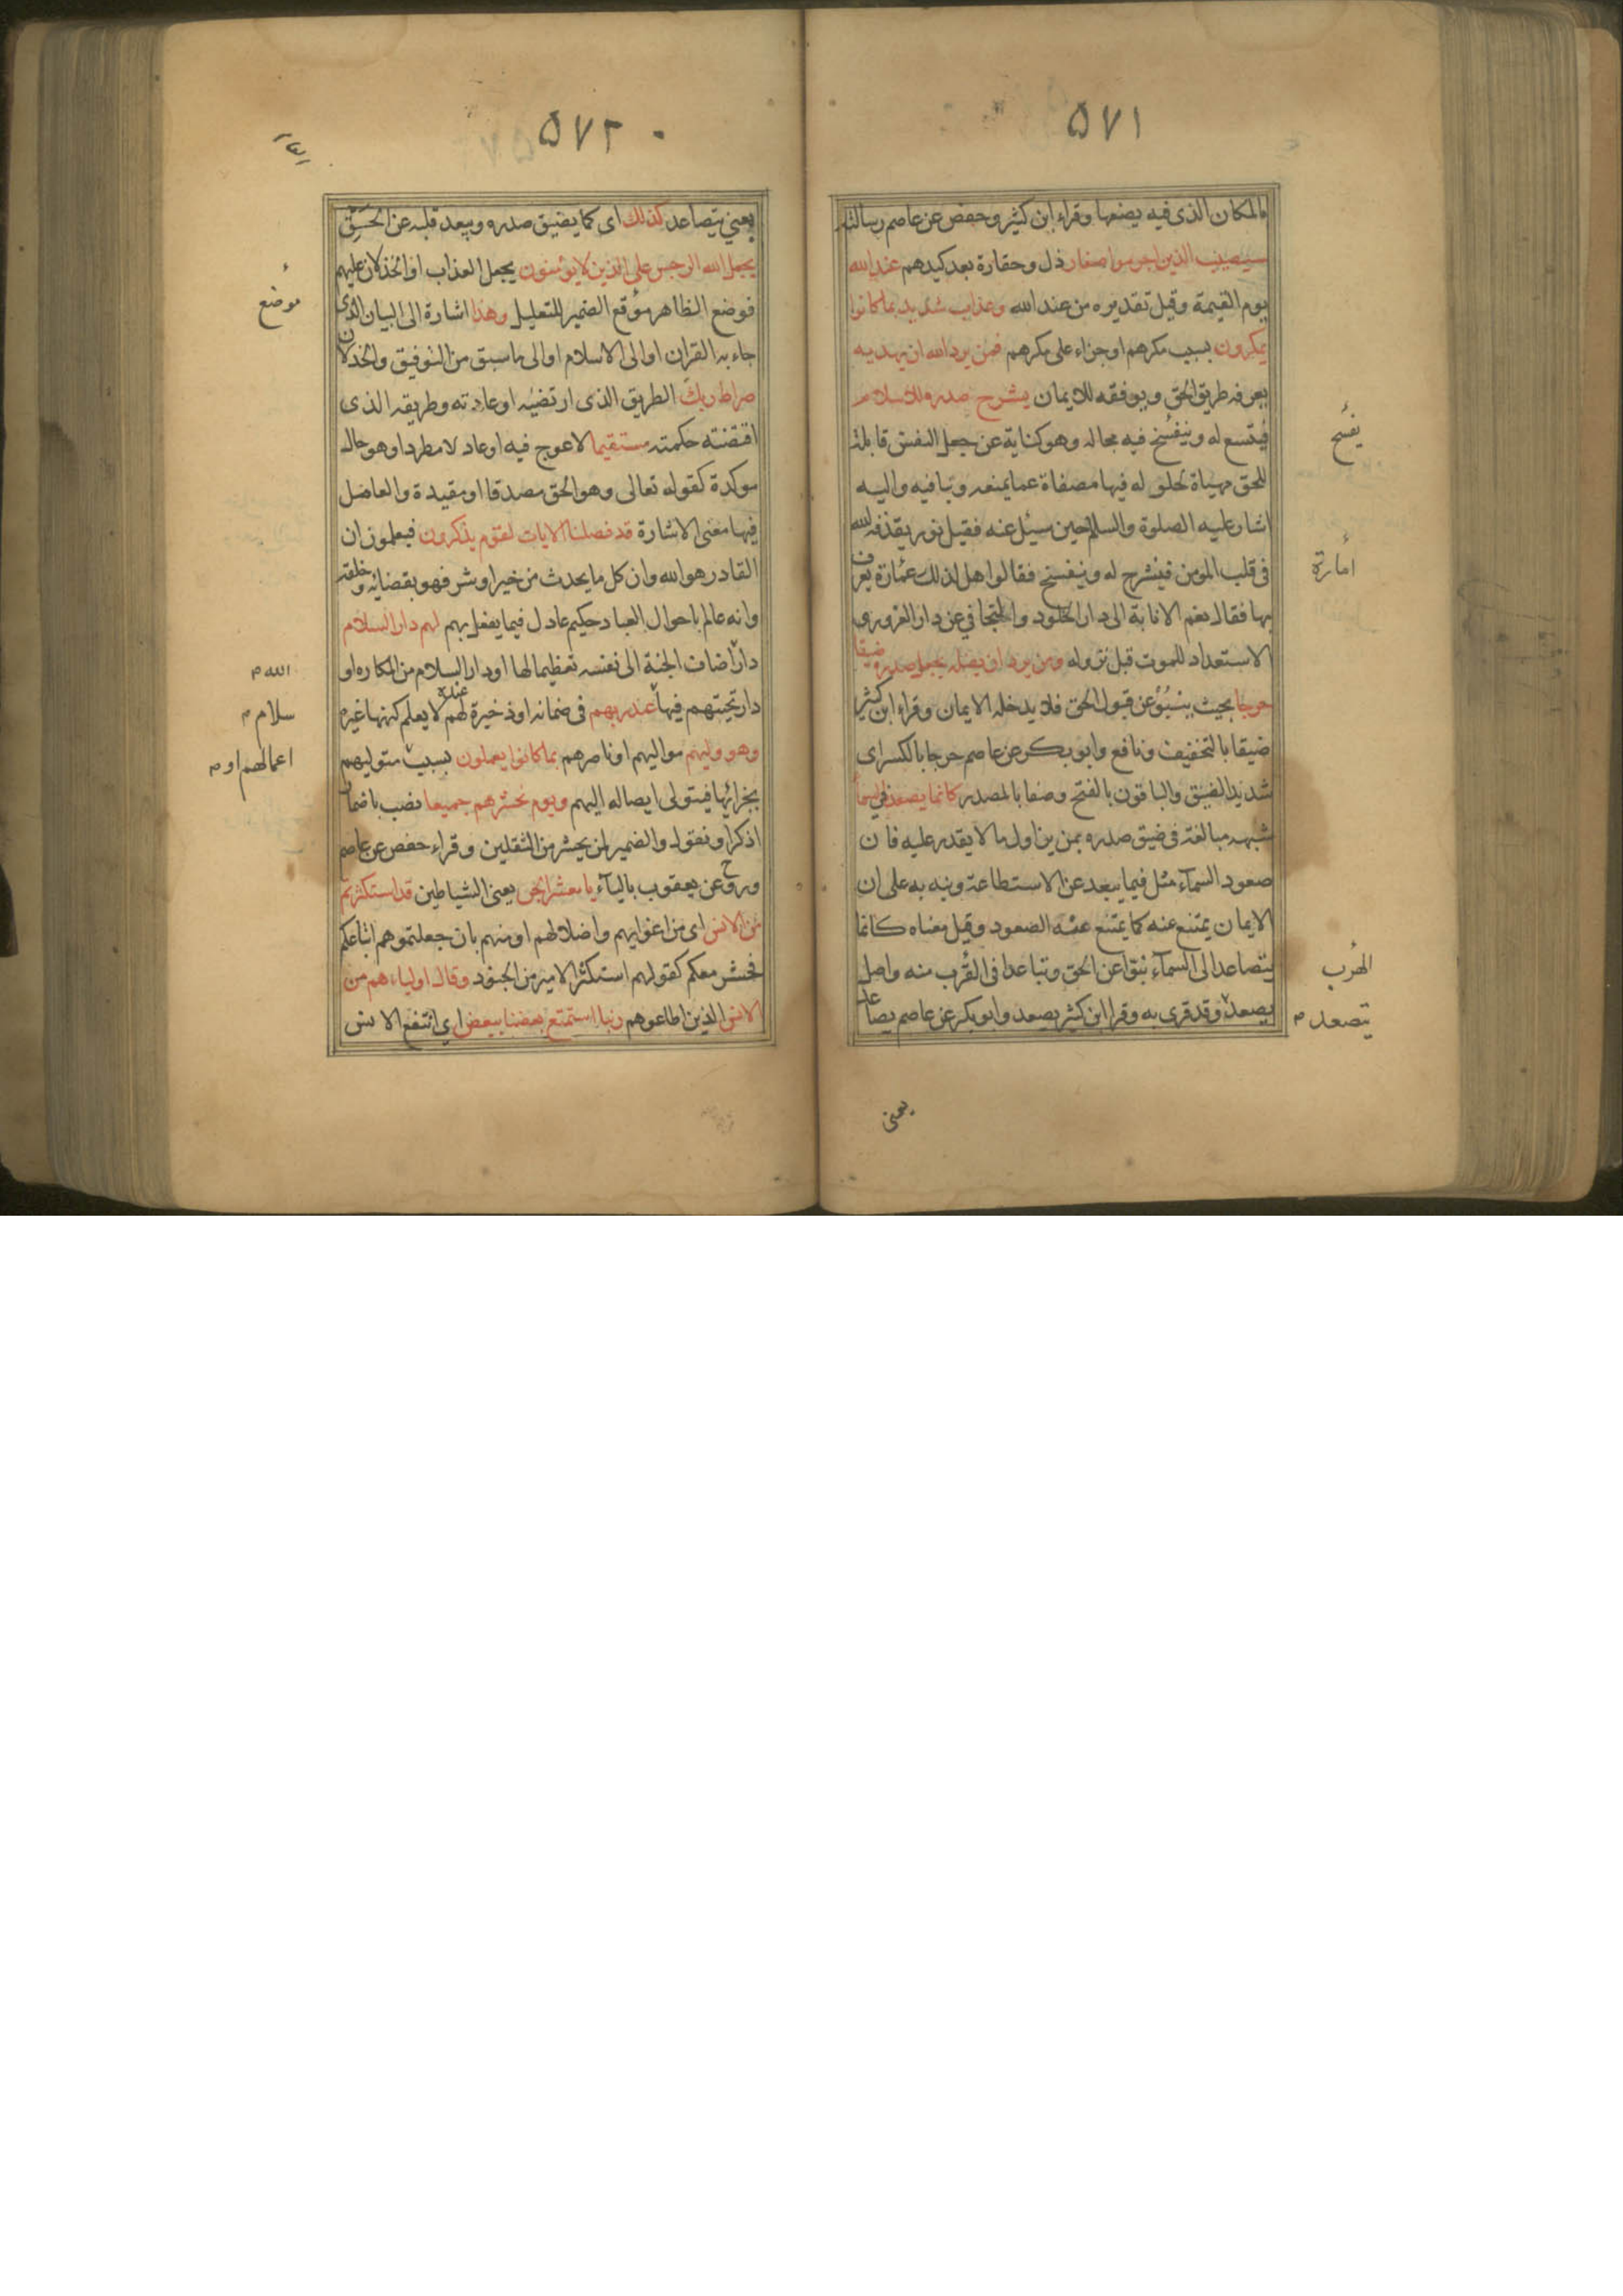 ۵۷۱
بالمكان الذى فيه يضعها وقراء ابن كثير وحفص عن عاصم رسالته
سيصيب الذين اجرموا صغار ذل وحقارة بعد كبرهم عند الله
يوم القيمة وقيل تقديره من عند الله وعذاب شديد بما كانوا
يمكرون بسبب مكرهم او جزاء على مكرهم فمن يرد الله ان يهديه
يعرفه طريق الحق ويوفقه للايمان يشرح صدره للاسلام
فيتسع له وينفسخ فيه مجاله وهو كناية عن جعل النفس قابلة
للحق مهياة لحلوله فيها مصفاة عما يمنعه وينافيه واليه
اشار عليه الصلوة والسلام حين سئل عنه فقيل نور يقذفه الله
فى قلب المومن فينشرح له وينفسخ فقالوا هل لذلك عمارة يعرف
بها فقال نعم الانابة الى دار الخلود والتجافي عن دار الغرور و
الاستعداد للموت قبل نزوله ومن يرد ان يضله يجعل صدره ضيقا
حرجا بحيث ينبؤ عن قبول الحق فلا يدخله الايمان وقراء ابن كثير
ضيقا بالتخفيف ونافع وابو بكر عن عاصم حرجا بالكسر اى
شديد الضيق والباقون بالفتح وصفا بالمصدر كانما يصعد في السماء
شبهه مبالغة فى ضيق صدره بمن يزاول ما لا يقدر عليه فان
صعود السماء مثل فيما يبعد عن الاستطاعة ونبه به على ان
الايمان يمتنع عنه كما يمتنع عنه الصعود وقيل معناه كانما
يتصاعد الى السماء نبوا عن الحق وتباعدا فى القرب منه واصل
يصعد وقد قرى به وقرا ابن كثير يصعد وابو بكر عن عاصم يصاعد
يفسح
امارة
الهرب
يتصعد م
يعنى
۵۷۲
يعني يتصاعد كذلك اى كما يضيق صدره ويبعد قلبه عن الحق
يجعل الله الرجس على الذين لا يؤمنون يجعل العذاب او الخذلان عليهم
فوضع الظاهر موقع الضمير للتعليل وهذا اشارة الى البيان الذى
جاء به القران او الى الاسلام او الى ما سبق من التوفيق والخذلان
صراط ربك الطريق الذى ارتضيه او عادته وطريقه الذى
اقتضته حكمته مستقيما لا عوج فيه او عادلا مطردا وهو حال
موكدة كقوله تعالى وهو الحق مصدقا او مقيدة والعامل
فيها معنى الاشارة قد فصلنا الايات لقوم يذكرون فيعلمون ان
القادر هو الله وان كل ما يحدث من خير او شر فهو بقضائه وخلقه
وانه عالم باحوال العباد حكيم عادل فيما يفعل بهم لهم دار السلام
دار اضاف الجنة الى نفسه تعظيما لها او دار السلام من المكاره او
دار تحيتهم فيها عند ربهم فى ضمانه او ذخيرة لهم عنده لا يعلم كنهها غيره
وهو وليهم مواليهم او ناصرهم بما كانوا يعملون بسبب متوليهم
بجزائها فيتولى ايصاله اليهم ويوم نحشرهم جميعا نصب باضمار
اذكر او نقول والضمير لمن يحشر من الثقلين وقراء حفص عن عاصم
وروح عن يعقوب بالياء يا معشر الجن يعنى الشياطين قد استكثرتم
من الانس اى من اغوايهم واضلالهم او منهم بان جعلتموهم اتباعكم
فحشر معكم كقولهم استكثر الامير من الجنود وقال اولياءهم من
الانس الذين اطاعوهم ربنا استمتع بعضنا ببعض اى انتفع الانس
موضع
الله م
سلام م
اعمالهم او م